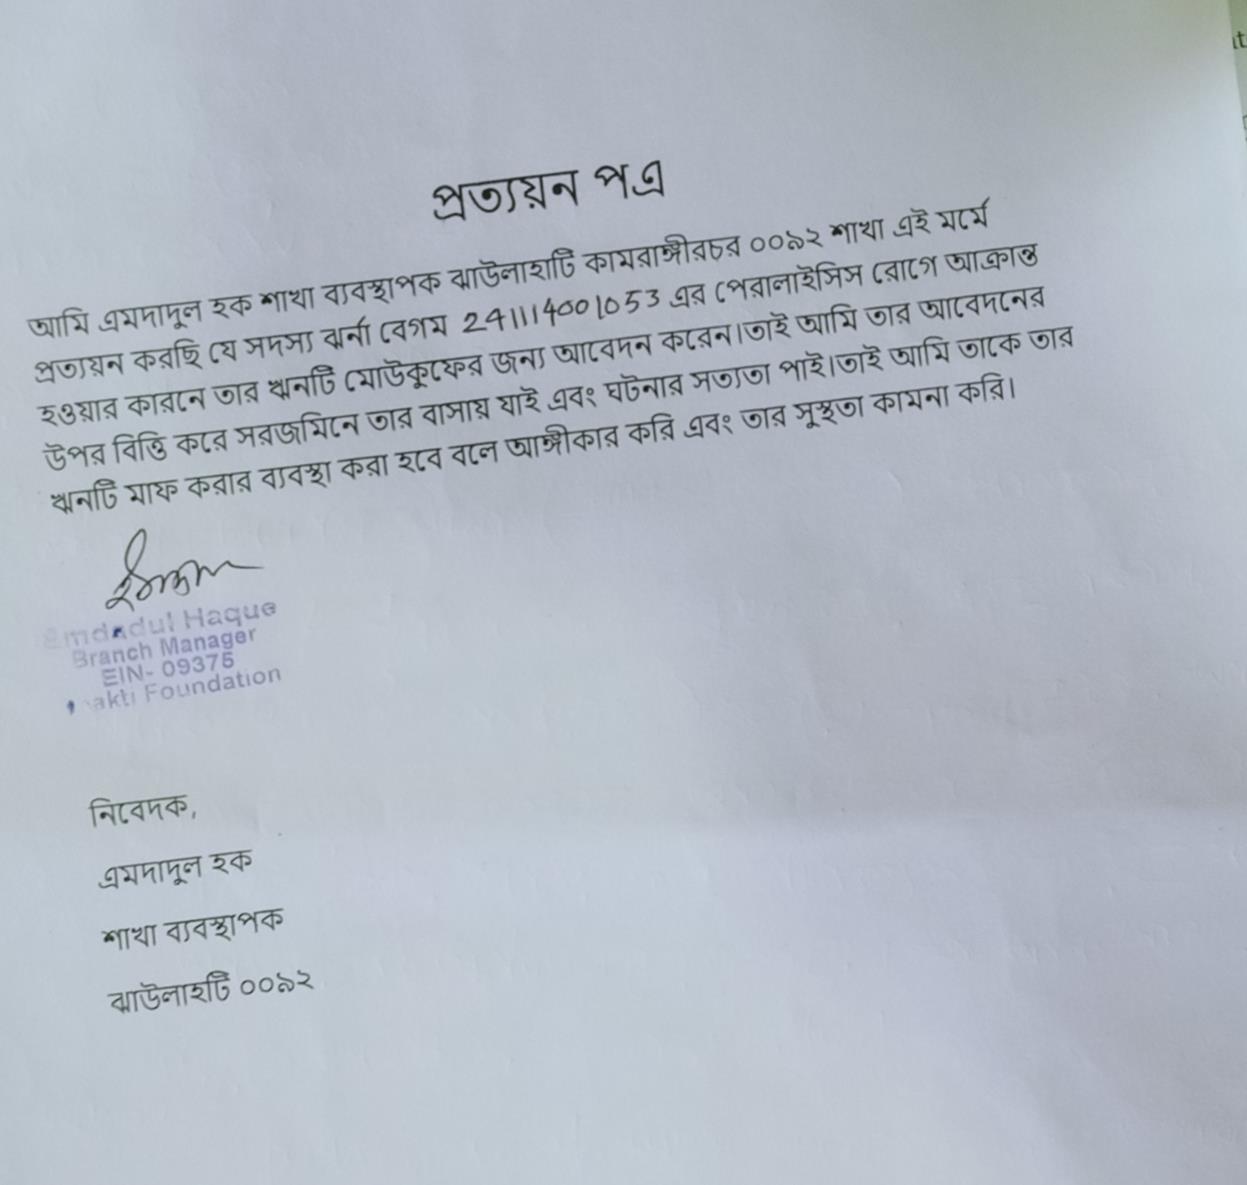 প্রত্যয়ন পএ
আমি এমদাদুল হক শাখা ব্যবস্থাপক ঝাউলাহাটি কামরাঙ্গীরচর ০০৯২ শাখা এই মর্মে
প্রত্যয়ন করছি যে সদস্য ঝর্না বেগম 241114001053 এর পেরালাইসিস রোগে আক্রান্ত
হওয়ার কারনে তার ঋনটি মোউকুফের জন্য আবেদন করেন।তাই আমি তার আবেদনের
উপর বিত্তি করে সরজমিনে তার বাসায় যাই এবং ঘটনার সত্যতা পাই।তাই আমি তাকে তার
ঋনটি মাফ করার ব্যবস্থা করা হবে বলে আঙ্গীকার করি এবং তার সুস্থতা কামনা করি।
Emdadul Haque
Branch Manager
EIN- 09375
akti Foundation
নিবেদক,
এমদাদুল হক
শাখা ব্যবস্থাপক
ঝাউলাহটি ০০৯২